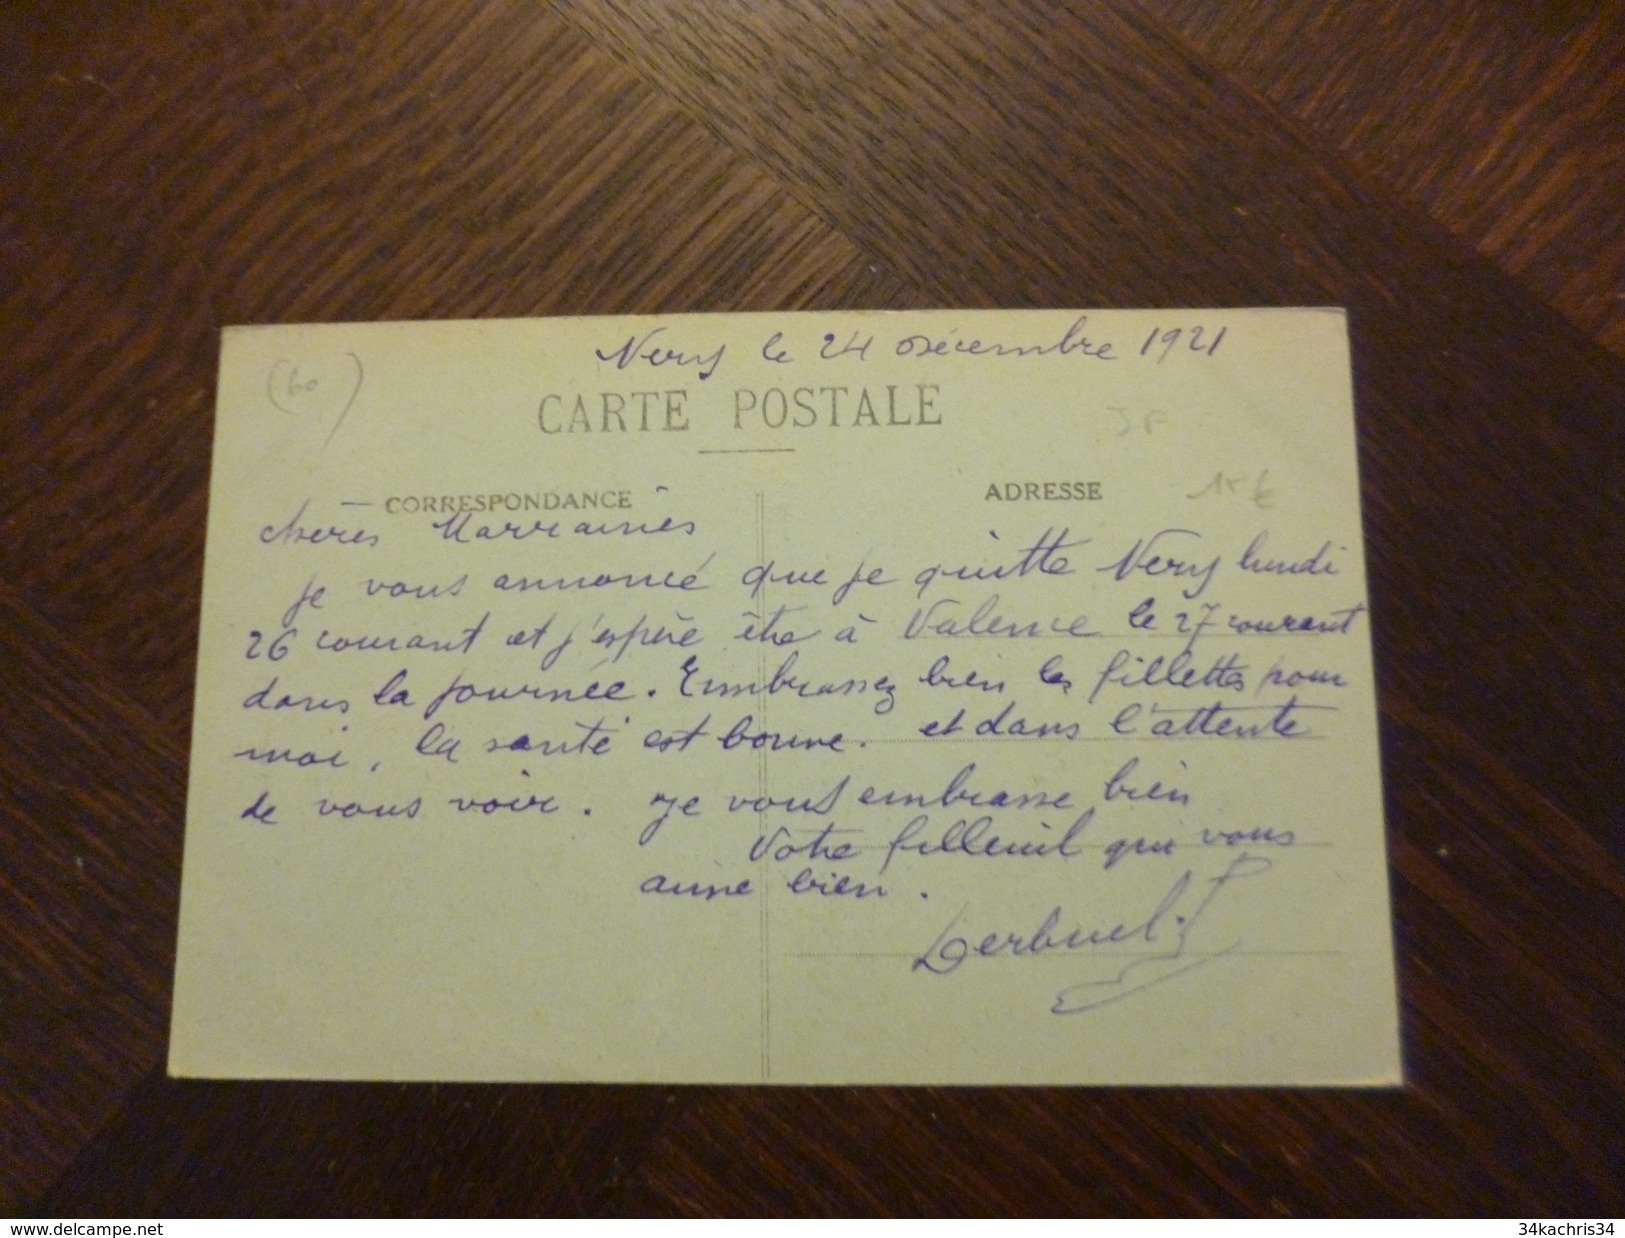 Nery le 24 Décembre 1921
(60)
CARTE POSTALE
JF
CORRESPONDANCE
ADRESSE
15€
chères Marraines
je vous annonce que je quitte Nery lundi
26 courant et j'espère être à Valence le 27 courant
dans la journée. Embrassez bien les fillettes pour
moi, la santé est bonne. et dans l'attente
de vous voir. Je vous embrasse bien
Votre filleuil qui vous
aime bien.
www.delcampe.net
34kachris34